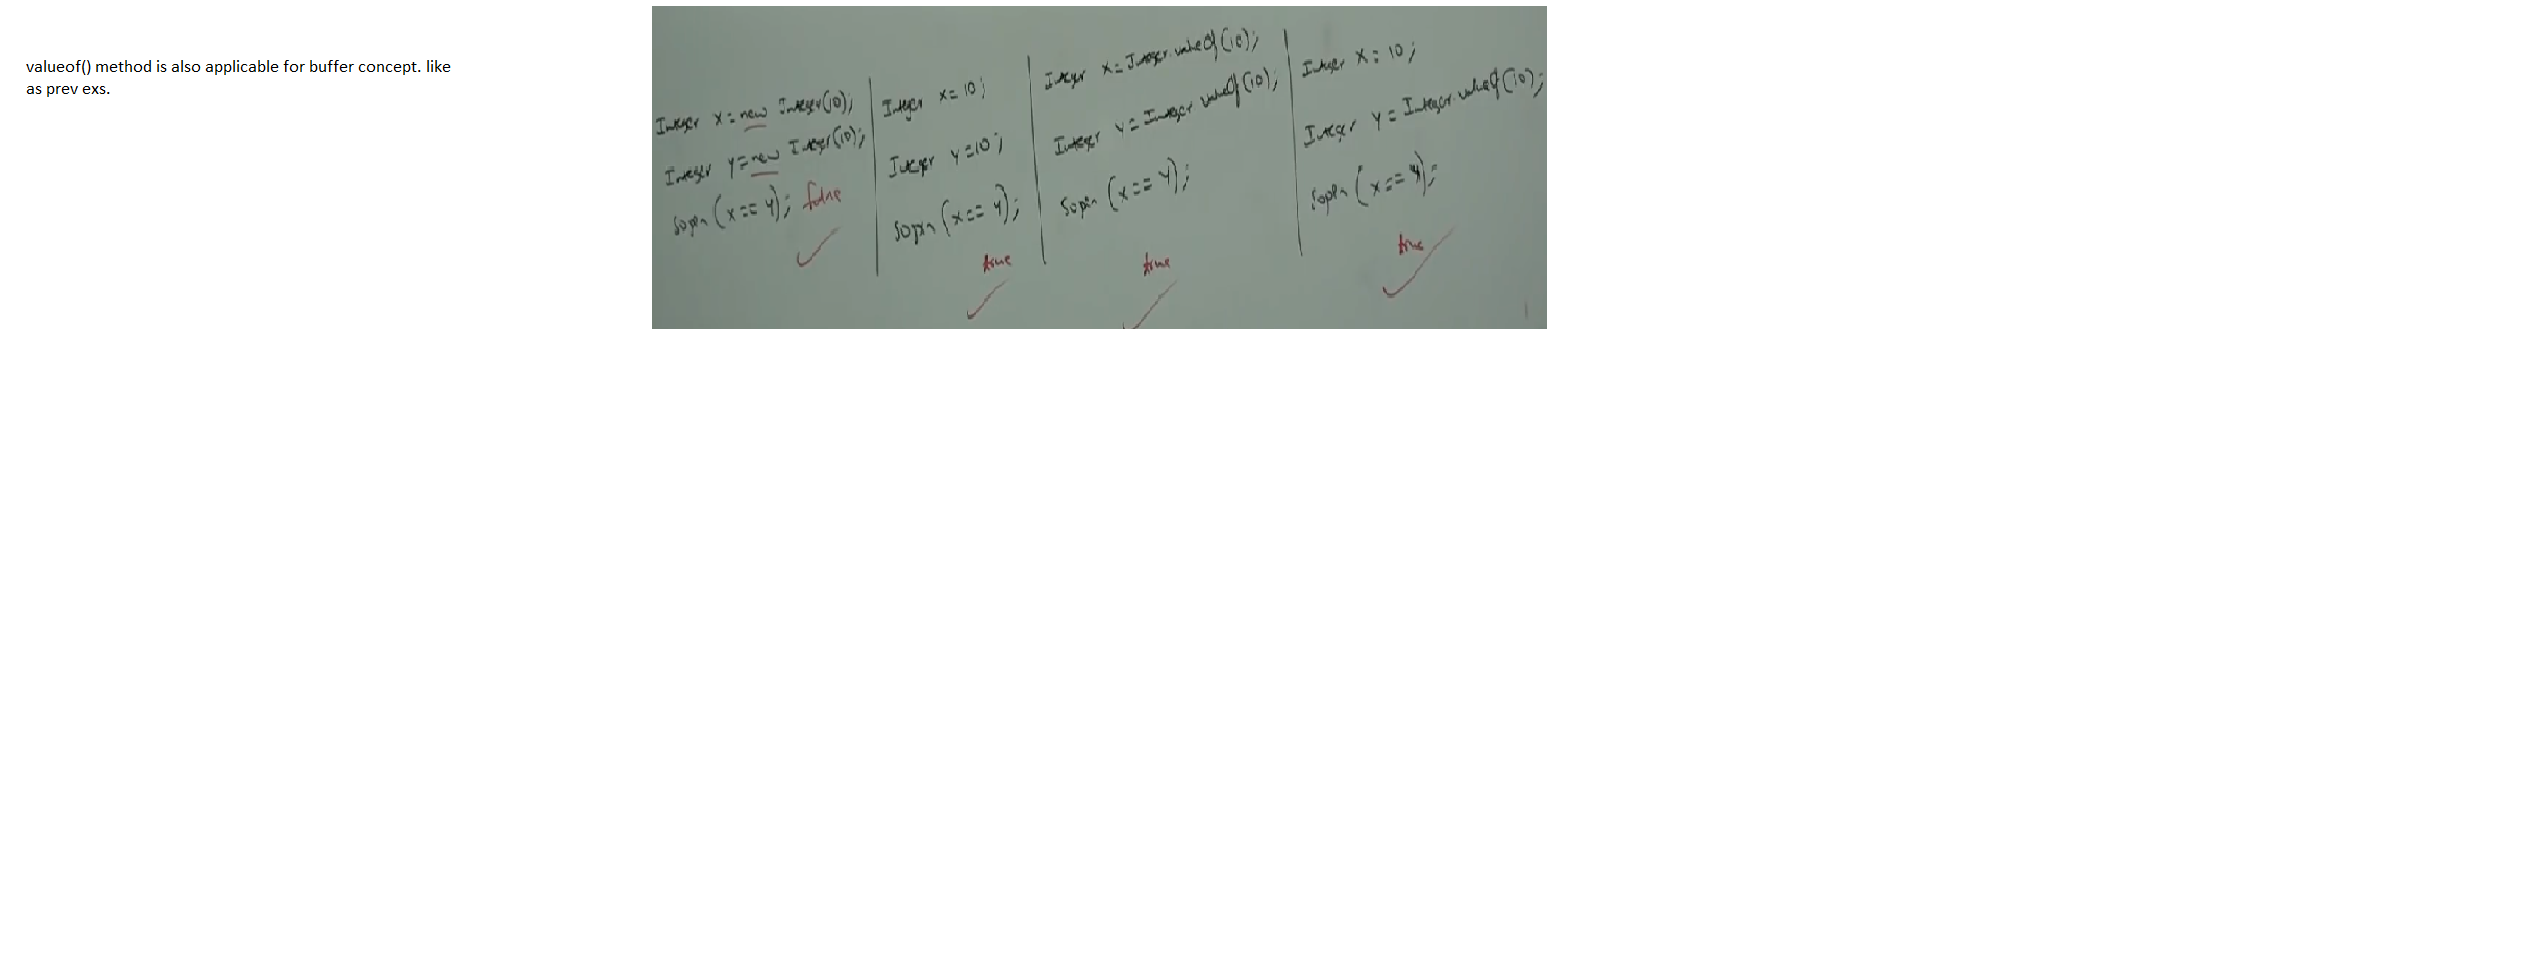 valueof() method is also applicable for buffer concept. like
as prev exs.
Integer x = new Integer(10);
Integer y = new Integer(10);
Sopln (x == y); false
Integer x = 10;
Integer y = 10;
Sopln (x == y);
true
Integer x = Integer.valueOf(10);
Integer y = Integer.valueOf(10);
Sopln (x == y);
true
Integer x = 10;
Integer y = Integer.valueOf(10);
Sopln (x == y);
true